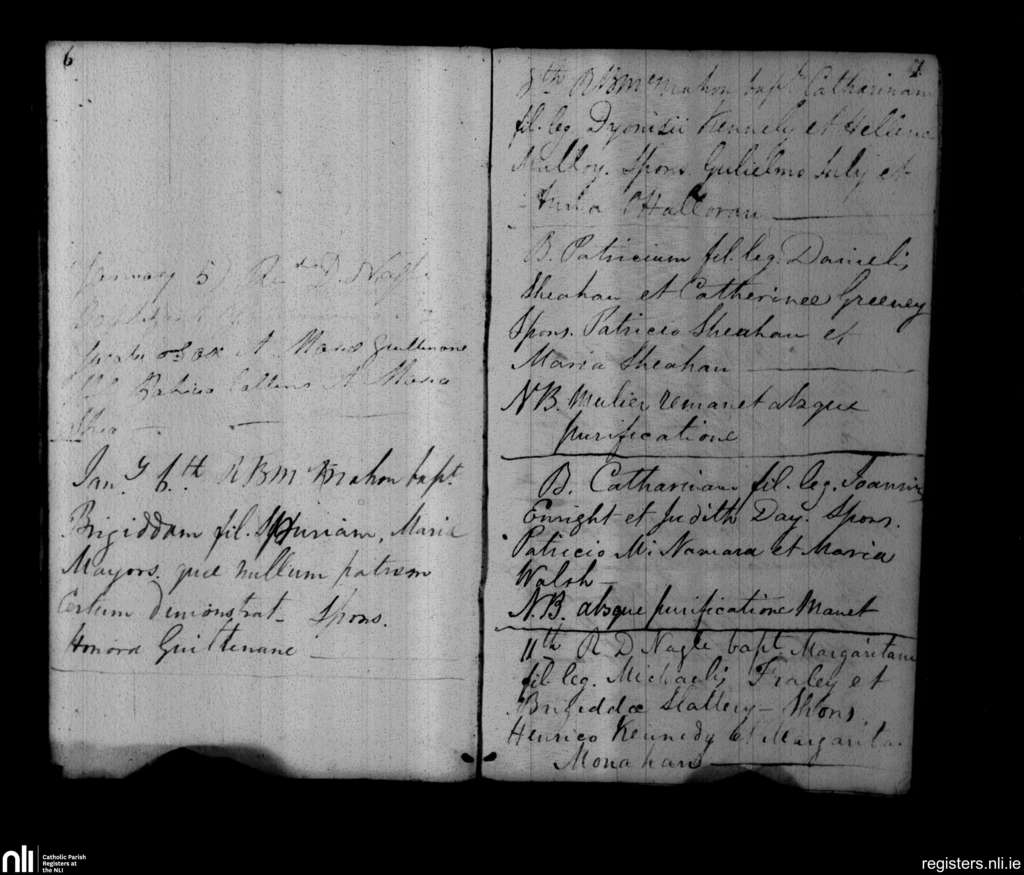 6
January 5
et Maria Guithenane
Patricio Collens et Maria
Shea
Jany 6th R B McMahon bapt.
Brigiddam fil. Spuriam, Maria
Mayors. quæ nullum patrem
Certum demonstrat _ Spons.
Honora Guithenane
8th R B McMahon bapt Catharinam
fil. leg. Dyonisii Kennely et Helenæ
Mulloy. Spons. Gulielmo et
O'Halloran
B. Patricium fil. leg. Danielis
Sheahan et Catherinee Greeney
Spons. Patricio Sheahan et
Maria Sheahan
NB. Mulier remanet absque
purificatione
B. Catharinam fil. leg. Joannis
Enright et Judith Day. Spons.
Patricio Mc Namara et Maria
Walsh _
N.B. absque purificatione Manet
11th R D Nagle bapt Margaritam
fil leg. Michaelis Fraley et
Brigiddæ Slattery _ Spons.
Henrico Kennedy et Margarita
Monahan
nli
Catholic Parish
Registers at
the NLI
registers.nli.ie